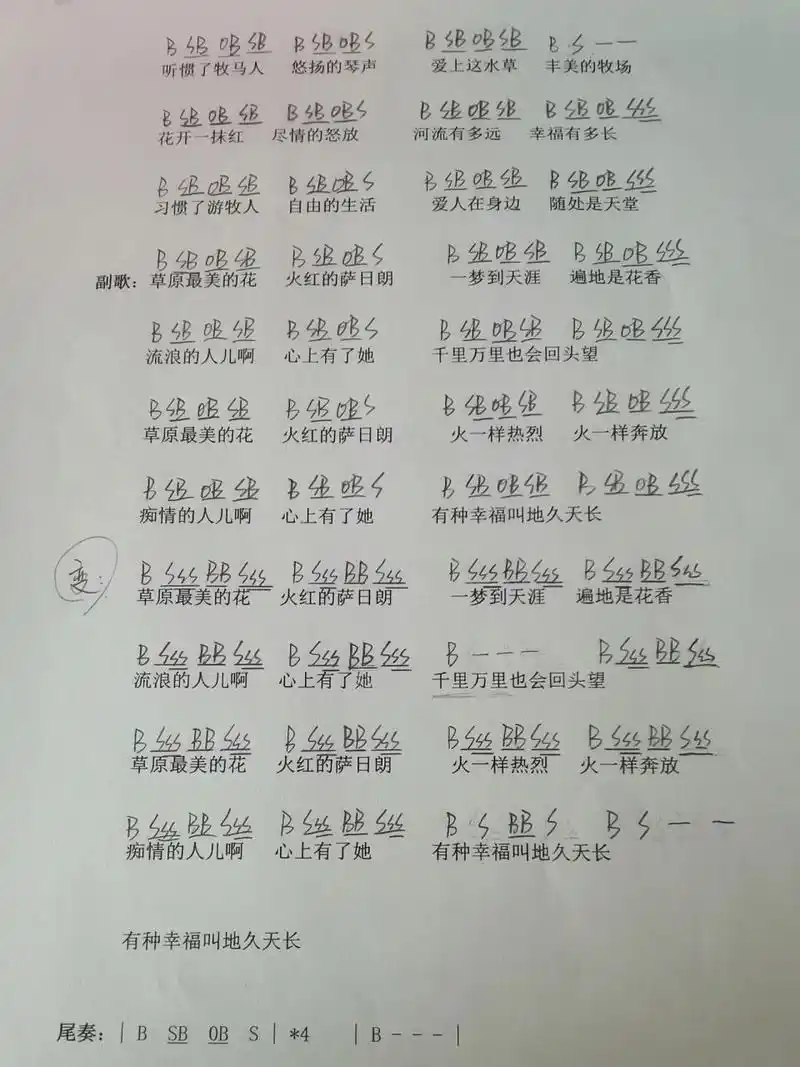 B SB OB SB B SB OB S B SB OB SB B S - -
听惯了牧马人 悠扬的琴声 爱上这水草 丰美的牧场
B SB OB SB B SB OB S B SB OB SB B SB OB SSS
花开一抹红 尽情的怒放 河流有多远 幸福有多长
B SB OB SB B SB OB S B SB OB SB B SB OB SSS
习惯了游牧人 自由的生活 爱人在身边 随处是天堂
B SB OB SB B SB OB S B SB OB SB B SB OB SSS
副歌：草原最美的花 火红的萨日朗 一梦到天涯 遍地是花香
B SB OB SB B SB OB S B SB OB SB B SB OB SSS
流浪的人儿啊 心上有了她 千里万里也会回头望
B SB OB SB B SB OB S B SB OB SB B SB OB SSS
草原最美的花 火红的萨日朗 火一样热烈 火一样奔放
B SB OB SB B SB OB S B SB OB SB B SB OB SSS
痴情的人儿啊 心上有了她 有种幸福叫地久天长
变： B SSS BB SSS B SSS BB SSS B SSS BB SSS B SSS BB SSS
草原最美的花 火红的萨日朗 一梦到天涯 遍地是花香
B SSS BB SSS B SSS BB SSS B - - - B SSS BB SSS
流浪的人儿啊 心上有了她 千里万里也会回头望
B SSS BB SSS B SSS BB SSS B SSS BB SSS B SSS BB SSS
草原最美的花 火红的萨日朗 火一样热烈 火一样奔放
B SSS BB SSS B SSS BB SSS B S BB S B S - -
痴情的人儿啊 心上有了她 有种幸福叫地久天长
有种幸福叫地久天长
尾奏：| B SB OB S | *4 | B - - - |